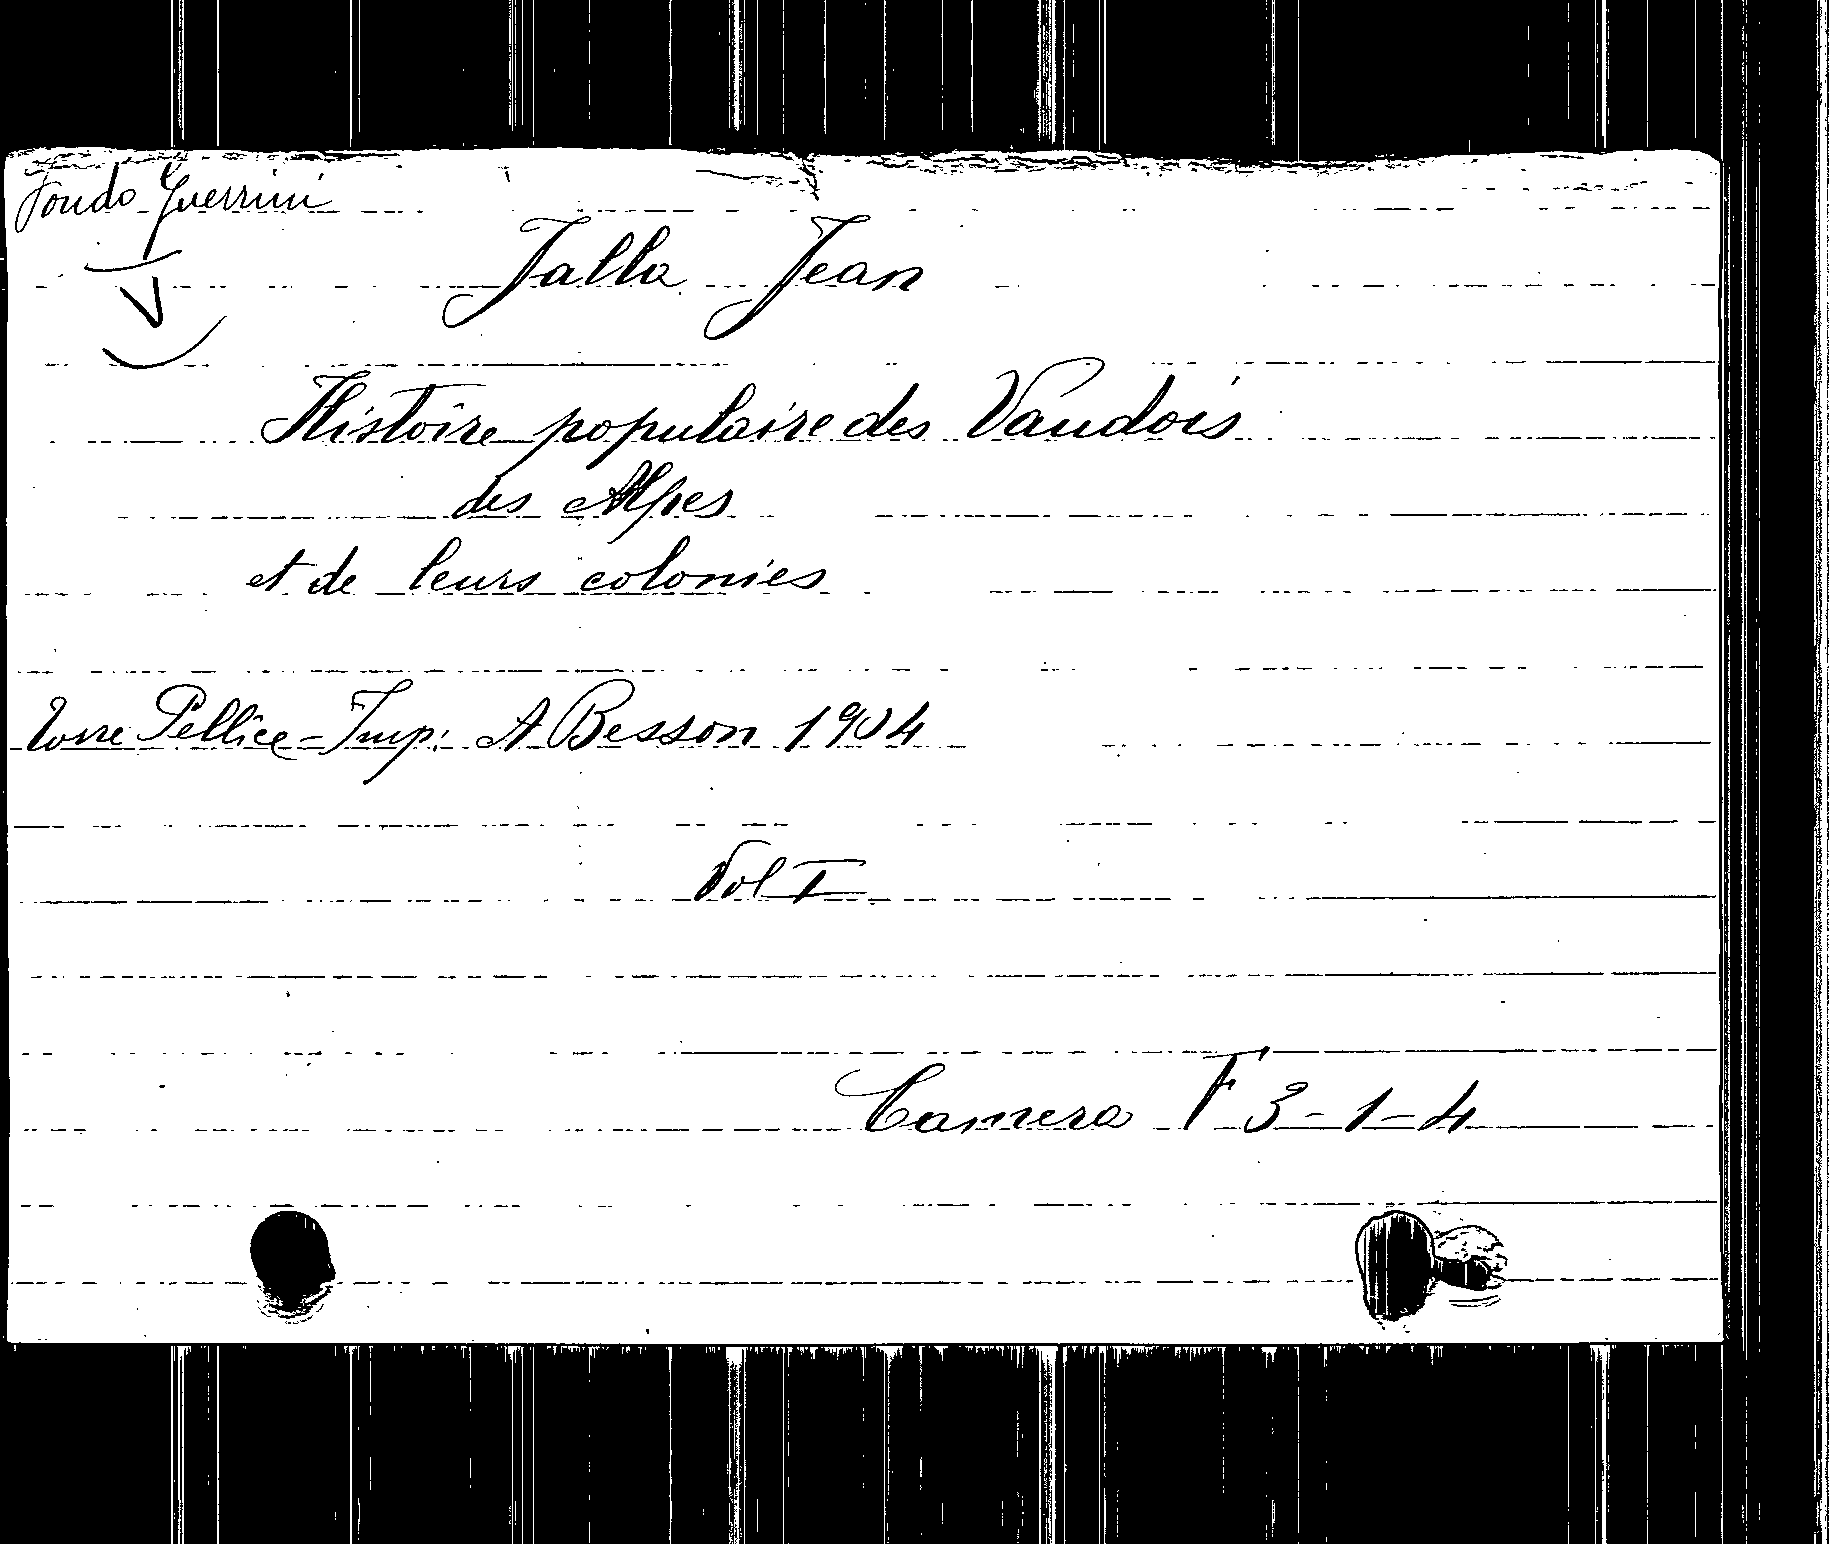 Fondo Guerrini
V
Jalla Jean
Histoire populaire des Vaudois
des Alpes
et de leurs colonies
Torre Pellice - Imp: A Besson 1904
Vol I
Camera F 3-1-4